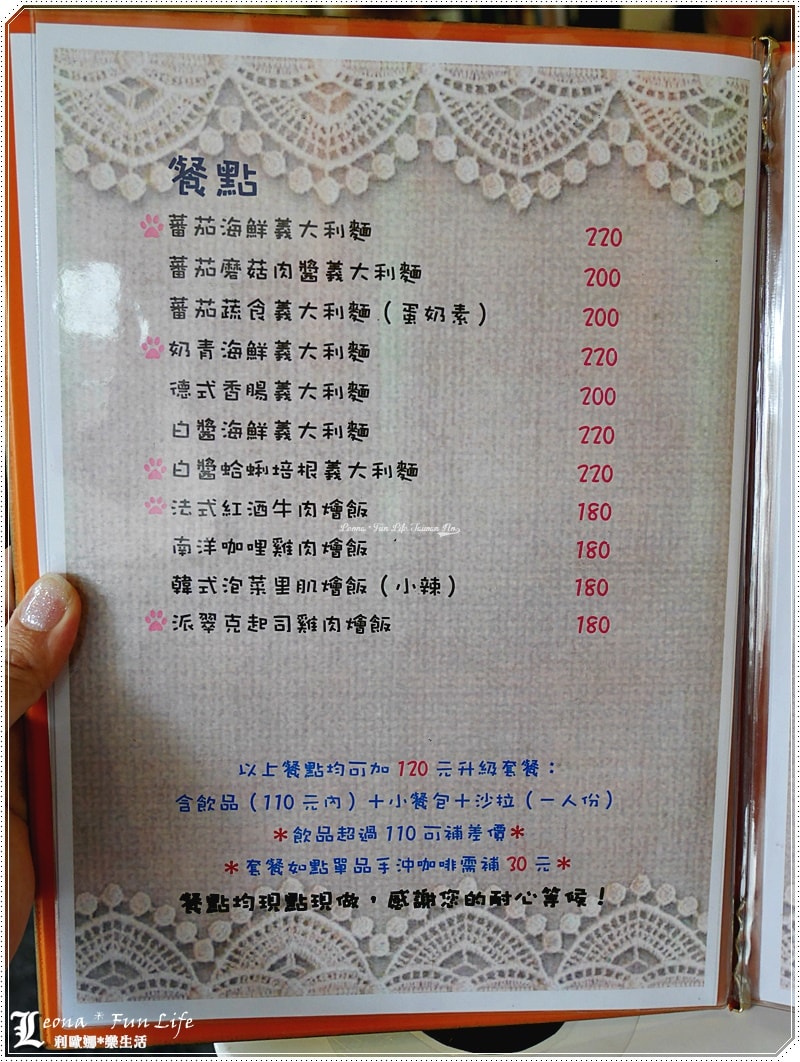 餐點
蕃茄海鮮義大利麵 220
蕃茄磨菇肉醬義大利麵 200
蕃茄蔬食義大利麵（蛋奶素） 200
奶青海鮮義大利麵 220
德式香腸義大利麵 200
白醬海鮮義大利麵 220
白醬蛤蜊培根義大利麵 220
法式紅酒牛肉燴飯 180
南洋咖哩雞肉燴飯 180
韓式泡菜里肌燴飯（小辣） 180
派翠克起司雞肉燴飯 180
以上餐點均可加 120 元升級套餐：
含飲品（110 元內）＋小餐包＋沙拉（一人份）
＊飲品超過 110 可補差價＊
＊套餐如點單品手沖咖啡需補 30 元＊
餐點均現點現做，感謝您的耐心等候！
Leona * Fun Life
利歐娜*樂生活